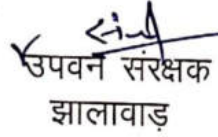 उपवन संरक्षक
झालावाड़